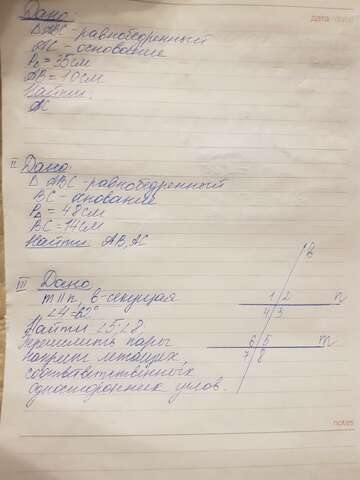 Дано:
Δ ABC - равнобедренный
AC - основание
P△ = 35см
AB = 10см
Найти:
AC
II Дано:
Δ ABC - равнобедренный
BC - основание
P△ = 48см
BC = 14см
Найти: AB, AC
III Дано
m || n, в - секущая
∠4 = 62°
Найти ∠5; ∠8,
пары
лежащих,
соответственных
односторонних углов.
в
1 2 n
4 3
6 5 m
7 8
data
notes